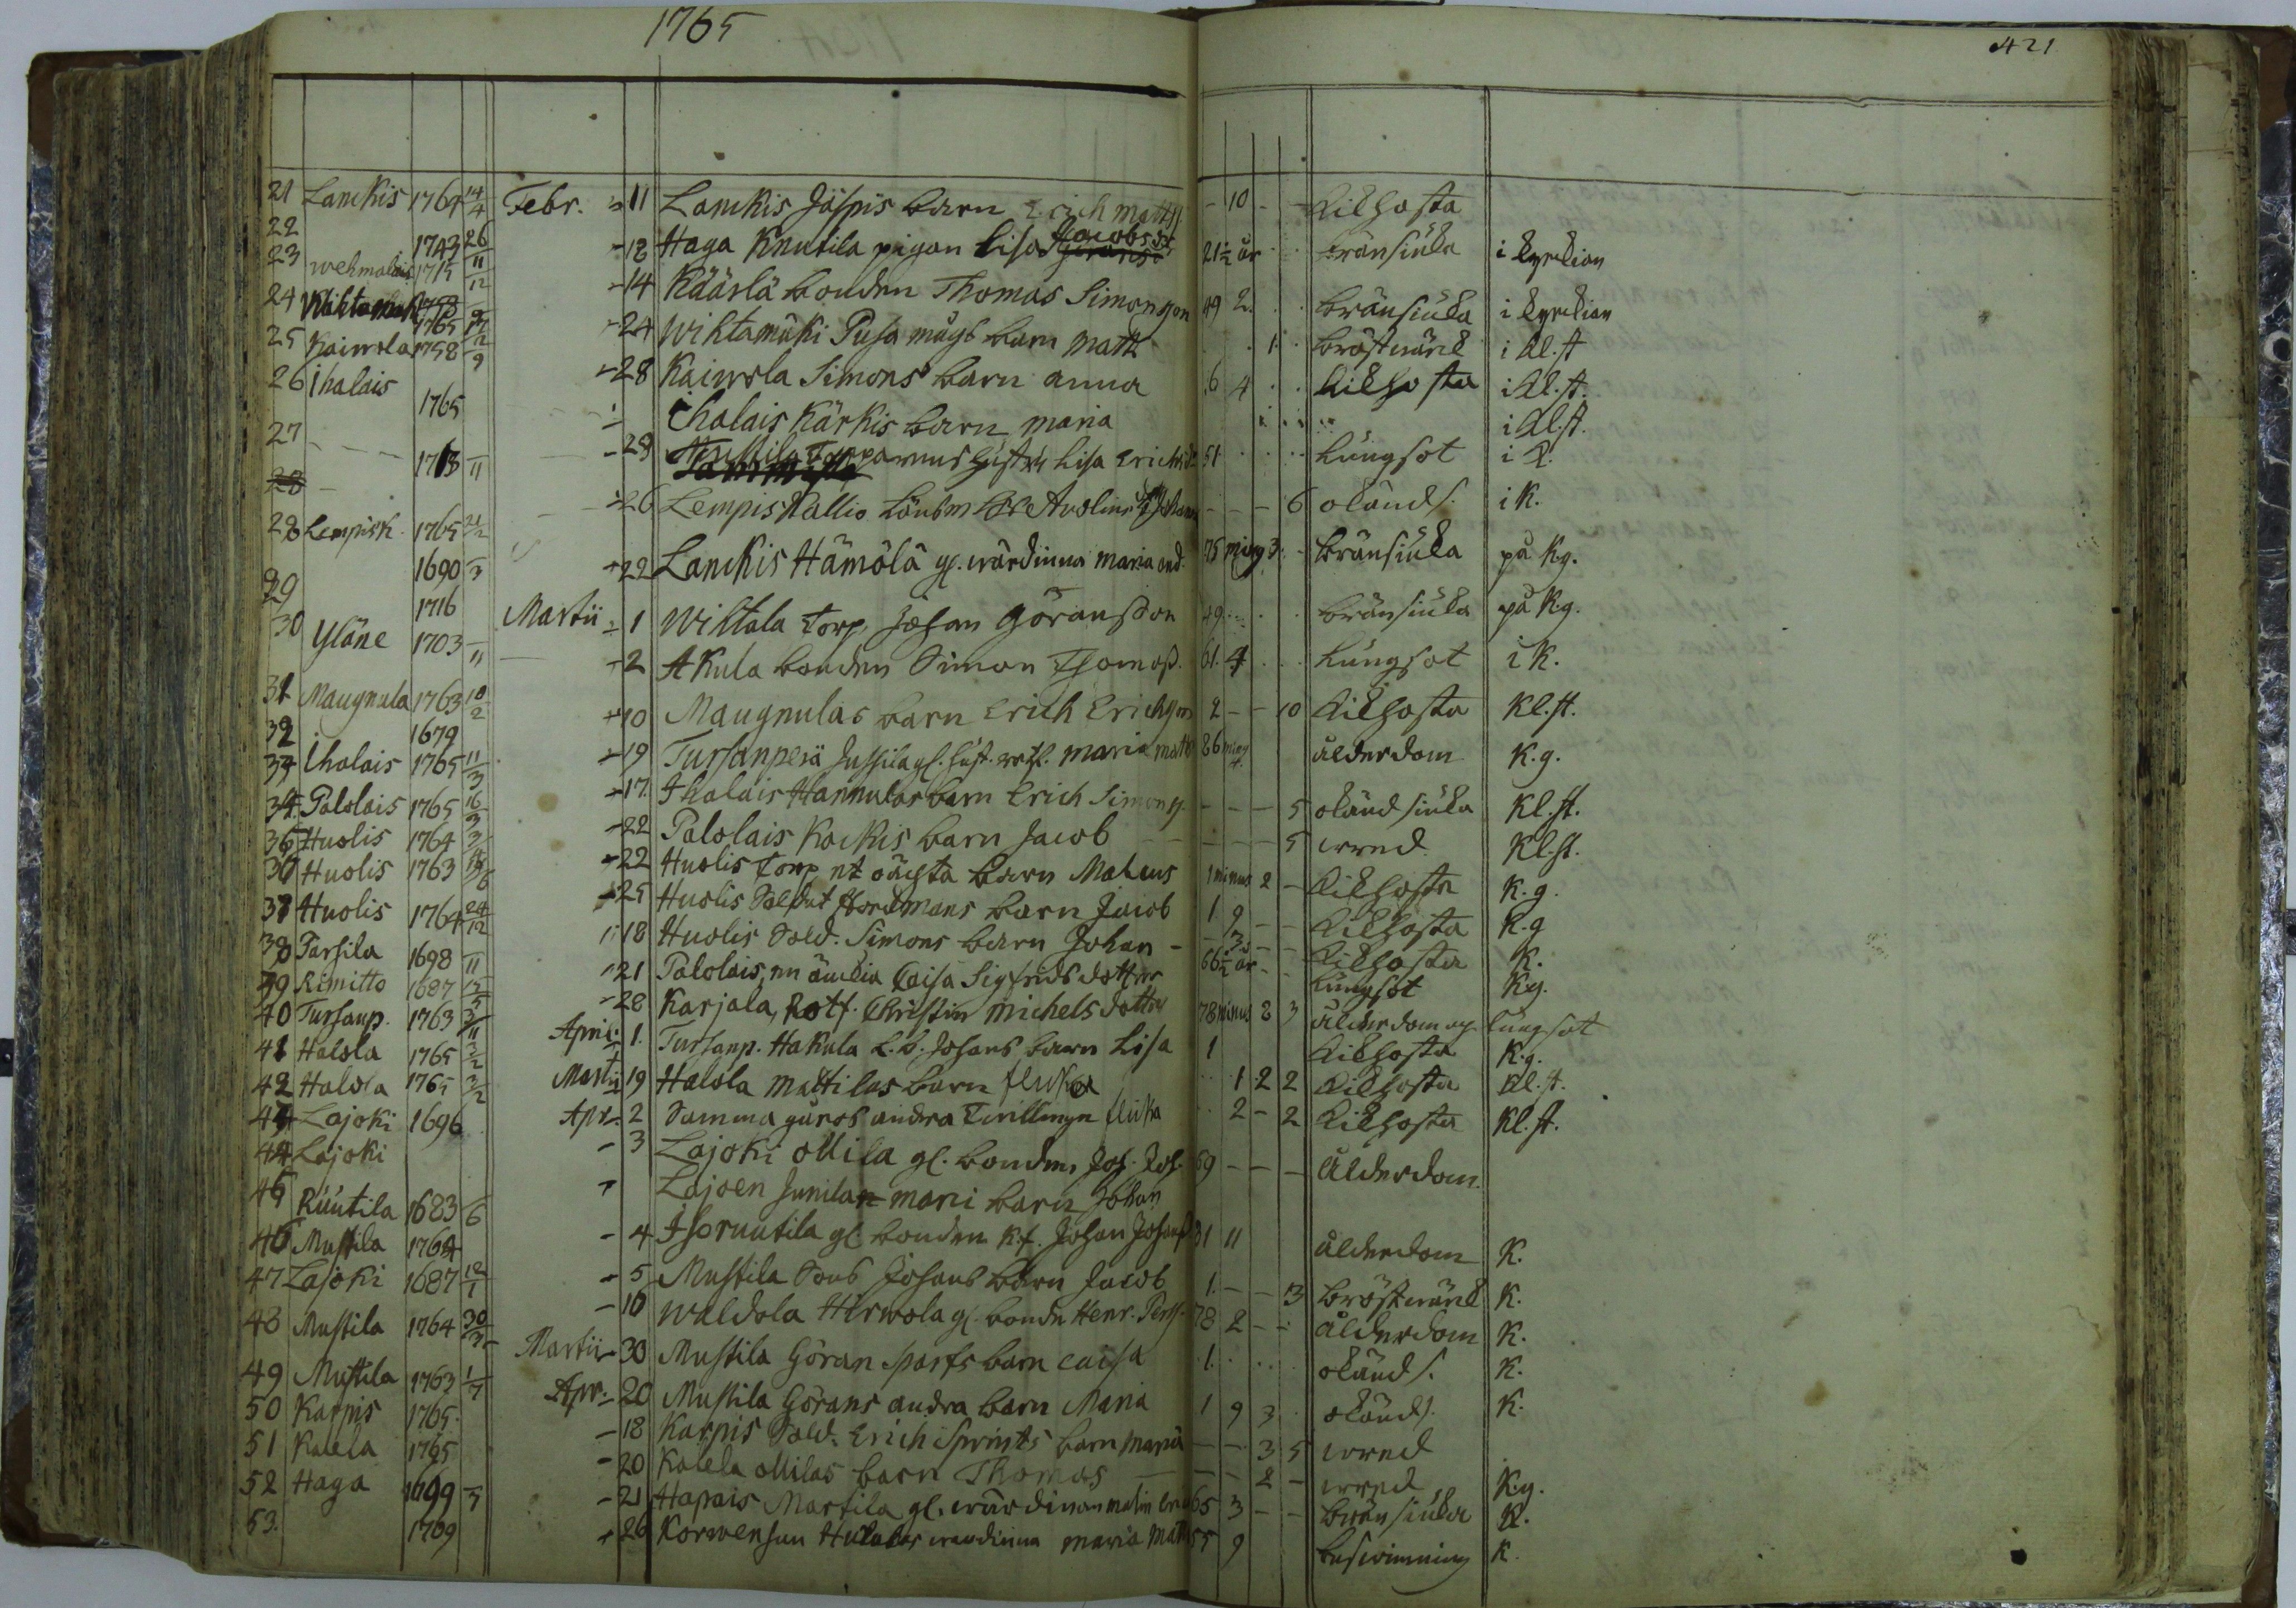 1765
421
21 Lanckis 1764 14/4 Febr. 11 Lanckis Jåspis barn Erich Matts - 10 - - kikhosta
22 1743 26/11 - 12 Haga Knutila pigan Lisa Jacobsd. 21 1/2 år bränsiuka i kyrkian
23 wehmalais 1715 12 - 14 Käärlä bonden Thomas Simonsson 49 2 bränsiuka i kyrkian
24 1765 - 24 Wihtamäki Pusa mågs barn Matth 1 bröstwärk i kl.st
25 Kaiwola 1758 9 - 28 Kaiwola Simons barn anna 6 4 kikhosta i kl.st.
26 ihalais 1765 ihalais Kärkis barn maria i kl.st.
27 - - - 1713 11 - 29 Torparens hustru Lisa Erichsd. 51 lungsot i K.
28 Lempisk. 1765 21/2 - 26 Lempis Kallio - - - 6 okänd s. i K.
29 1690 3 - 22 Lanckis Hämölä gl. wärdinna maria and. 75 min9 3 bränsiuka på K.g.
1716 Martii 1 Wiltala Torp. Johan Göransson 49 bränsiuka på K.g.
30 Yläne 1703 11 - 2 Akula bonden Simon Thomass. 61. 4 lungsot i K.
31 Maugnula 1763 10/2 - 10 Maugnulas barn Erich Erichson 2 - - 10 kikhosta Kl.st.
32 1679 - 19 Tursanperä Jussila gl. hust. maria matts 86 min9 4 ålderdom K.g.
33 ihalais 1765 11/3 - 17. Ihalais Hannulas barn Erich Simonss. - - - 5 okänd siuka Kl.st.
34 Palolais 1765 16/3 - 22 Palolais Kockis barn Jacob - - - 5 wred Kl.st.
35 Huolis 1764 3 - 22 Huolis Torp. nt oächta barn Mateus 1 minus 2 - kikhosta K.g.
36 Huolis 1763 6 - 25 Huolis Soldat Nordmans barn Jacob 1 9 - - kikhosta K.g
37 Huolis 1764 24/12 18 Huolis Sold. Simons barn Johan - - 3 - - kikhosta K.
38 Tarsila 1698 11 - 21 Palolais, en änckia Caisa Sigfrids dotter 66 1/2 år - - lungsot K.g.
39 Rimitto 1687 - 28 Karjala, Rotf. Christin Michels dotter 78 minus 8 3 ålderdom og lungsot
40 Tursanp. 1763 Apri: 1. Tursanp. Hakula L. b. Johans barn Lisa 1 kikhosta K.g.
41 Halola 1765 3/2 Martii 19 Halola Mattilas barn flicka 1 2 2 kikhosta Kl.st.
42 Halola 1765 3/2 Apr. 2 Samma gårds andra twillingen flicka 2 - 2 kikhosta Kl.st.
43 Lajoki 1696 - 3 Lajoki Ollila gl. bonden Joh. Joh. 69 - - - Ålderdom.
44 Lajoki Lajoen Junilan mari barn Johan
45 Ruutila 1683 6 - 4 Isoruutila gl. bonden K.f. Johan Johanss 81 11 ålderdom K.
46 Mustila 1764 - 5 Mustila Sons Johans barn Jacob 1. - - 13 bröstwärk K.
47 Lajoki 1687 12/1 - 16 Waldola Hirwola gl. bonde Henr. Pers. 78 2 - - ålderdom K.
48 Mustila 1764 30/3 Martii - 30 Mustila Göran Sparfs barn caisa 1. okänd s. K.
49 Mustila 1763 1/7 Apr. - 20 Mustila Görans andra barn Maria 1 9 3 okänd s. K.
50 Karpis 1765. - 18 Karpis Sold. Erich Sprints barn maria - - 3 5 wred
51 Kalela 1765 - 20 Kalela Ollilas barn Thomas - - 2 - wred K.g.
52 Haga 1699 5 - 21 Hapais Martila gl. wärdinnan malin 65 3 - - bränsiuka K.
53. 1709 - 26 Korwensun wärdinna maria Matts 55 9 K.